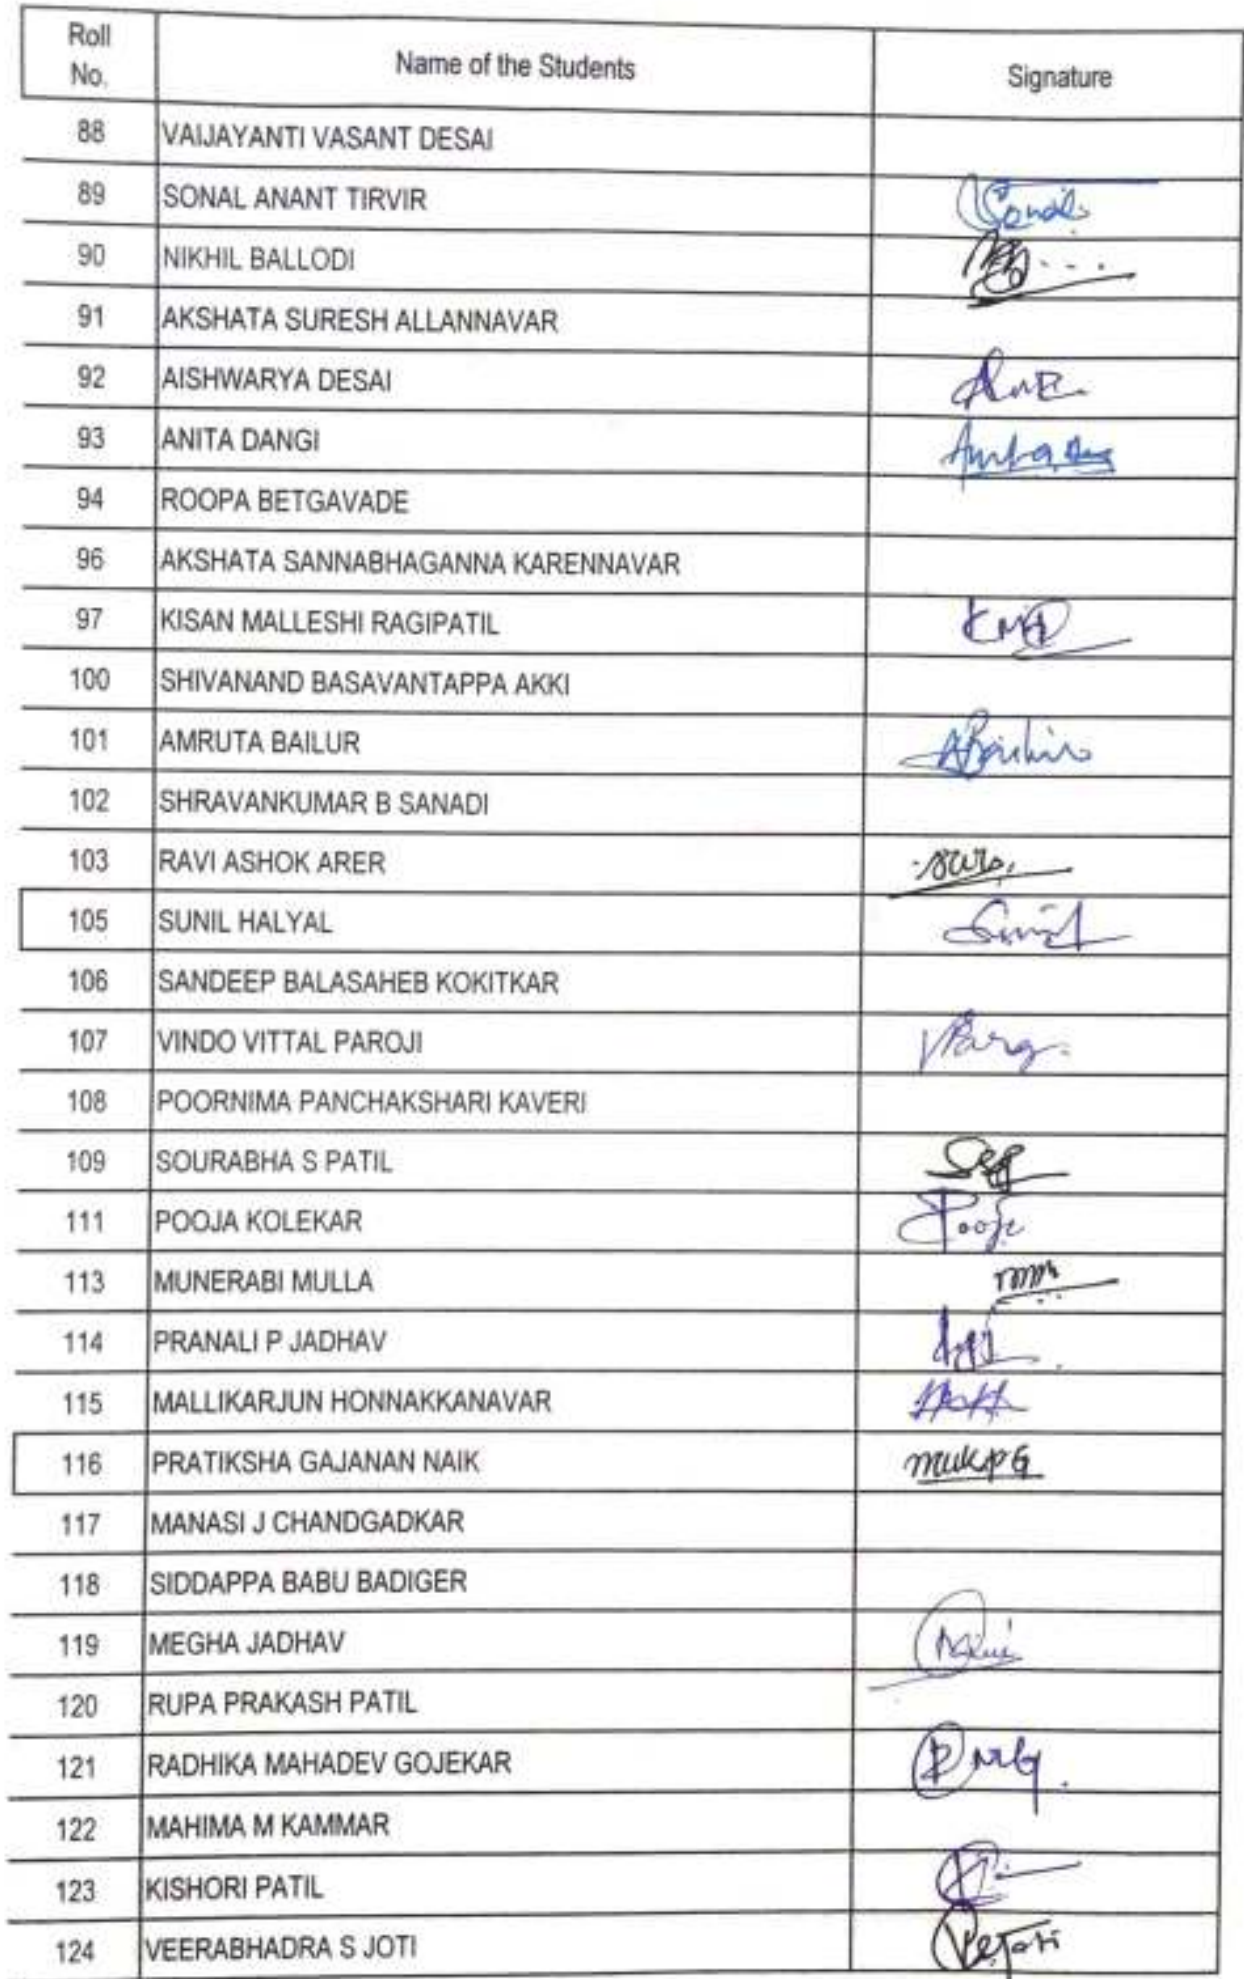 Roll No. Name of the Students Signature
88 VAIJAYANTI VASANT DESAI
89 SONAL ANANT TIRVIR Sonal
90 NIKHIL BALLODI
91 AKSHATA SURESH ALLANNAVAR
92 AISHWARYA DESAI
93 ANITA DANGI
94 ROOPA BETGAVADE
96 AKSHATA SANNABHAGANNA KARENNAVAR
97 KISAN MALLESHI RAGIPATIL
100 SHIVANAND BASAVANTAPPA AKKI
101 AMRUTA BAILUR
102 SHRAVANKUMAR B SANADI
103 RAVI ASHOK ARER
105 SUNIL HALYAL
106 SANDEEP BALASAHEB KOKITKAR
107 VINDO VITTAL PAROJI
108 POORNIMA PANCHAKSHARI KAVERI
109 SOURABHA S PATIL
111 POOJA KOLEKAR Pooja
113 MUNERABI MULLA
114 PRANALI P JADHAV
115 MALLIKARJUN HONNAKKANAVAR
116 PRATIKSHA GAJANAN NAIK
117 MANASI J CHANDGADKAR
118 SIDDAPPA BABU BADIGER
119 MEGHA JADHAV
120 RUPA PRAKASH PATIL
121 RADHIKA MAHADEV GOJEKAR
122 MAHIMA M KAMMAR
123 KISHORI PATIL
124 VEERABHADRA S JOTI